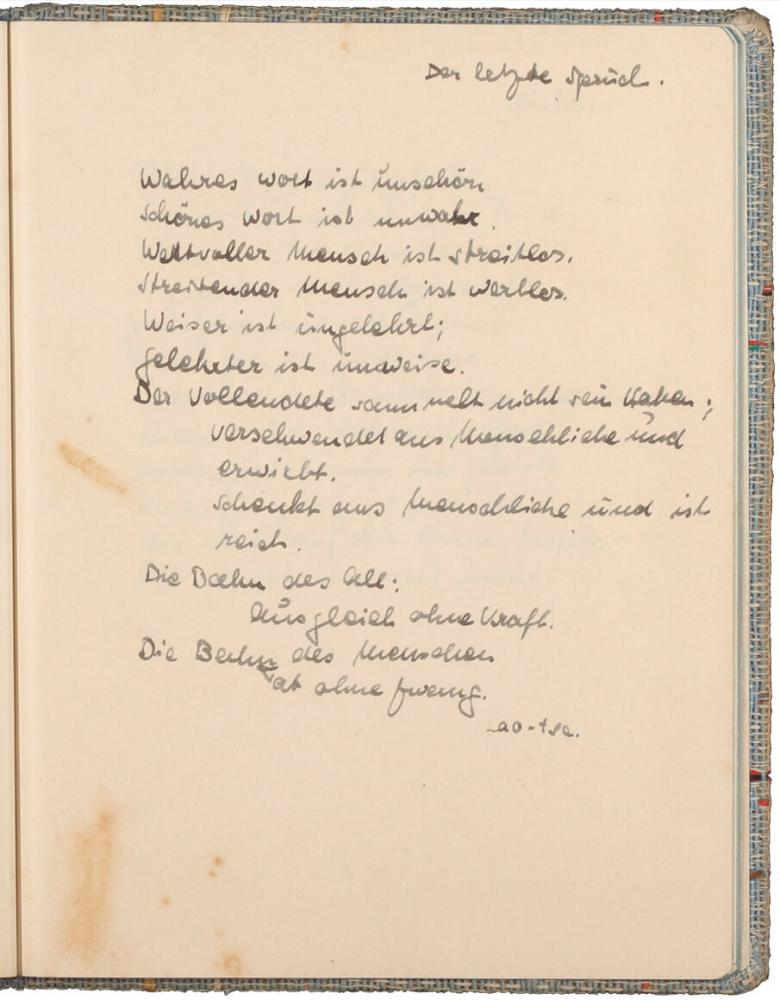 Der letzte Spruch.
Wahres Wort ist unschön
Schönes Wort ist unwahr.
Wertvoller Mensch ist streitlos.
Streitender Mensch ist wertlos.
Weiser ist ungelehrt;
Gelehrter ist unweise.
Der Vollendete sammelt nicht sein Haben;
verschwendet ans Menschliche und
erwirbt.
Schenkt ans Menschliche und ist
reich.
Die Bahn des All:
Ausgleich ohne Kraft.
Die Bahn des Menschen
Tat ohne Zwang.
Lao-tse.